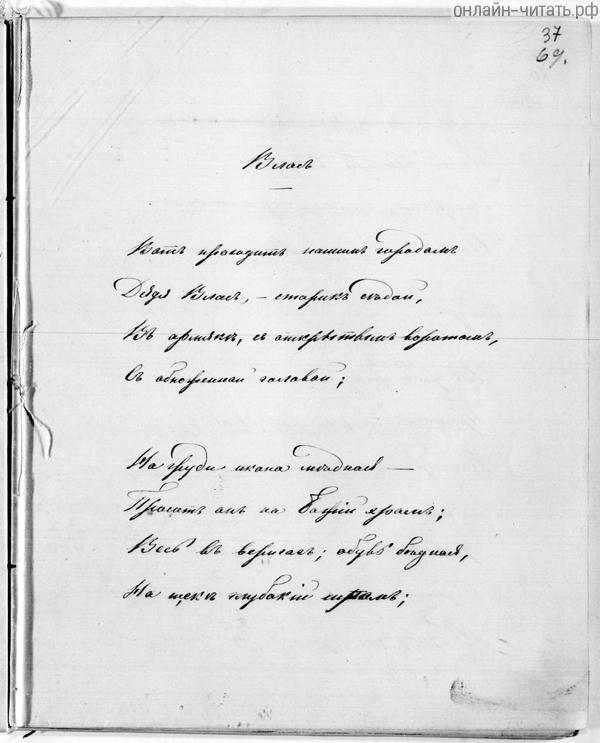 онлайн-читать.рф
37
69.
Власъ
Вотъ проходитъ нашимъ городомъ
Дядя Власъ, – старикъ сѣдой,
Въ армякѣ, съ открытымъ воротомъ,
Съ обнаженной головой;
На груди икона мѣдная —
Проситъ онъ на Божій храмъ;
Весь въ веригахъ; обувь бѣдная,
На щекѣ глубокій шрамъ;